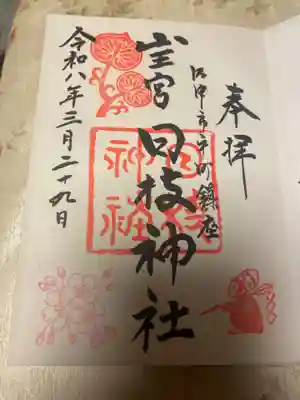 奉拝
町鎮座
山王宮
日枝神社
日枝
神社
令和八年三月二十九日